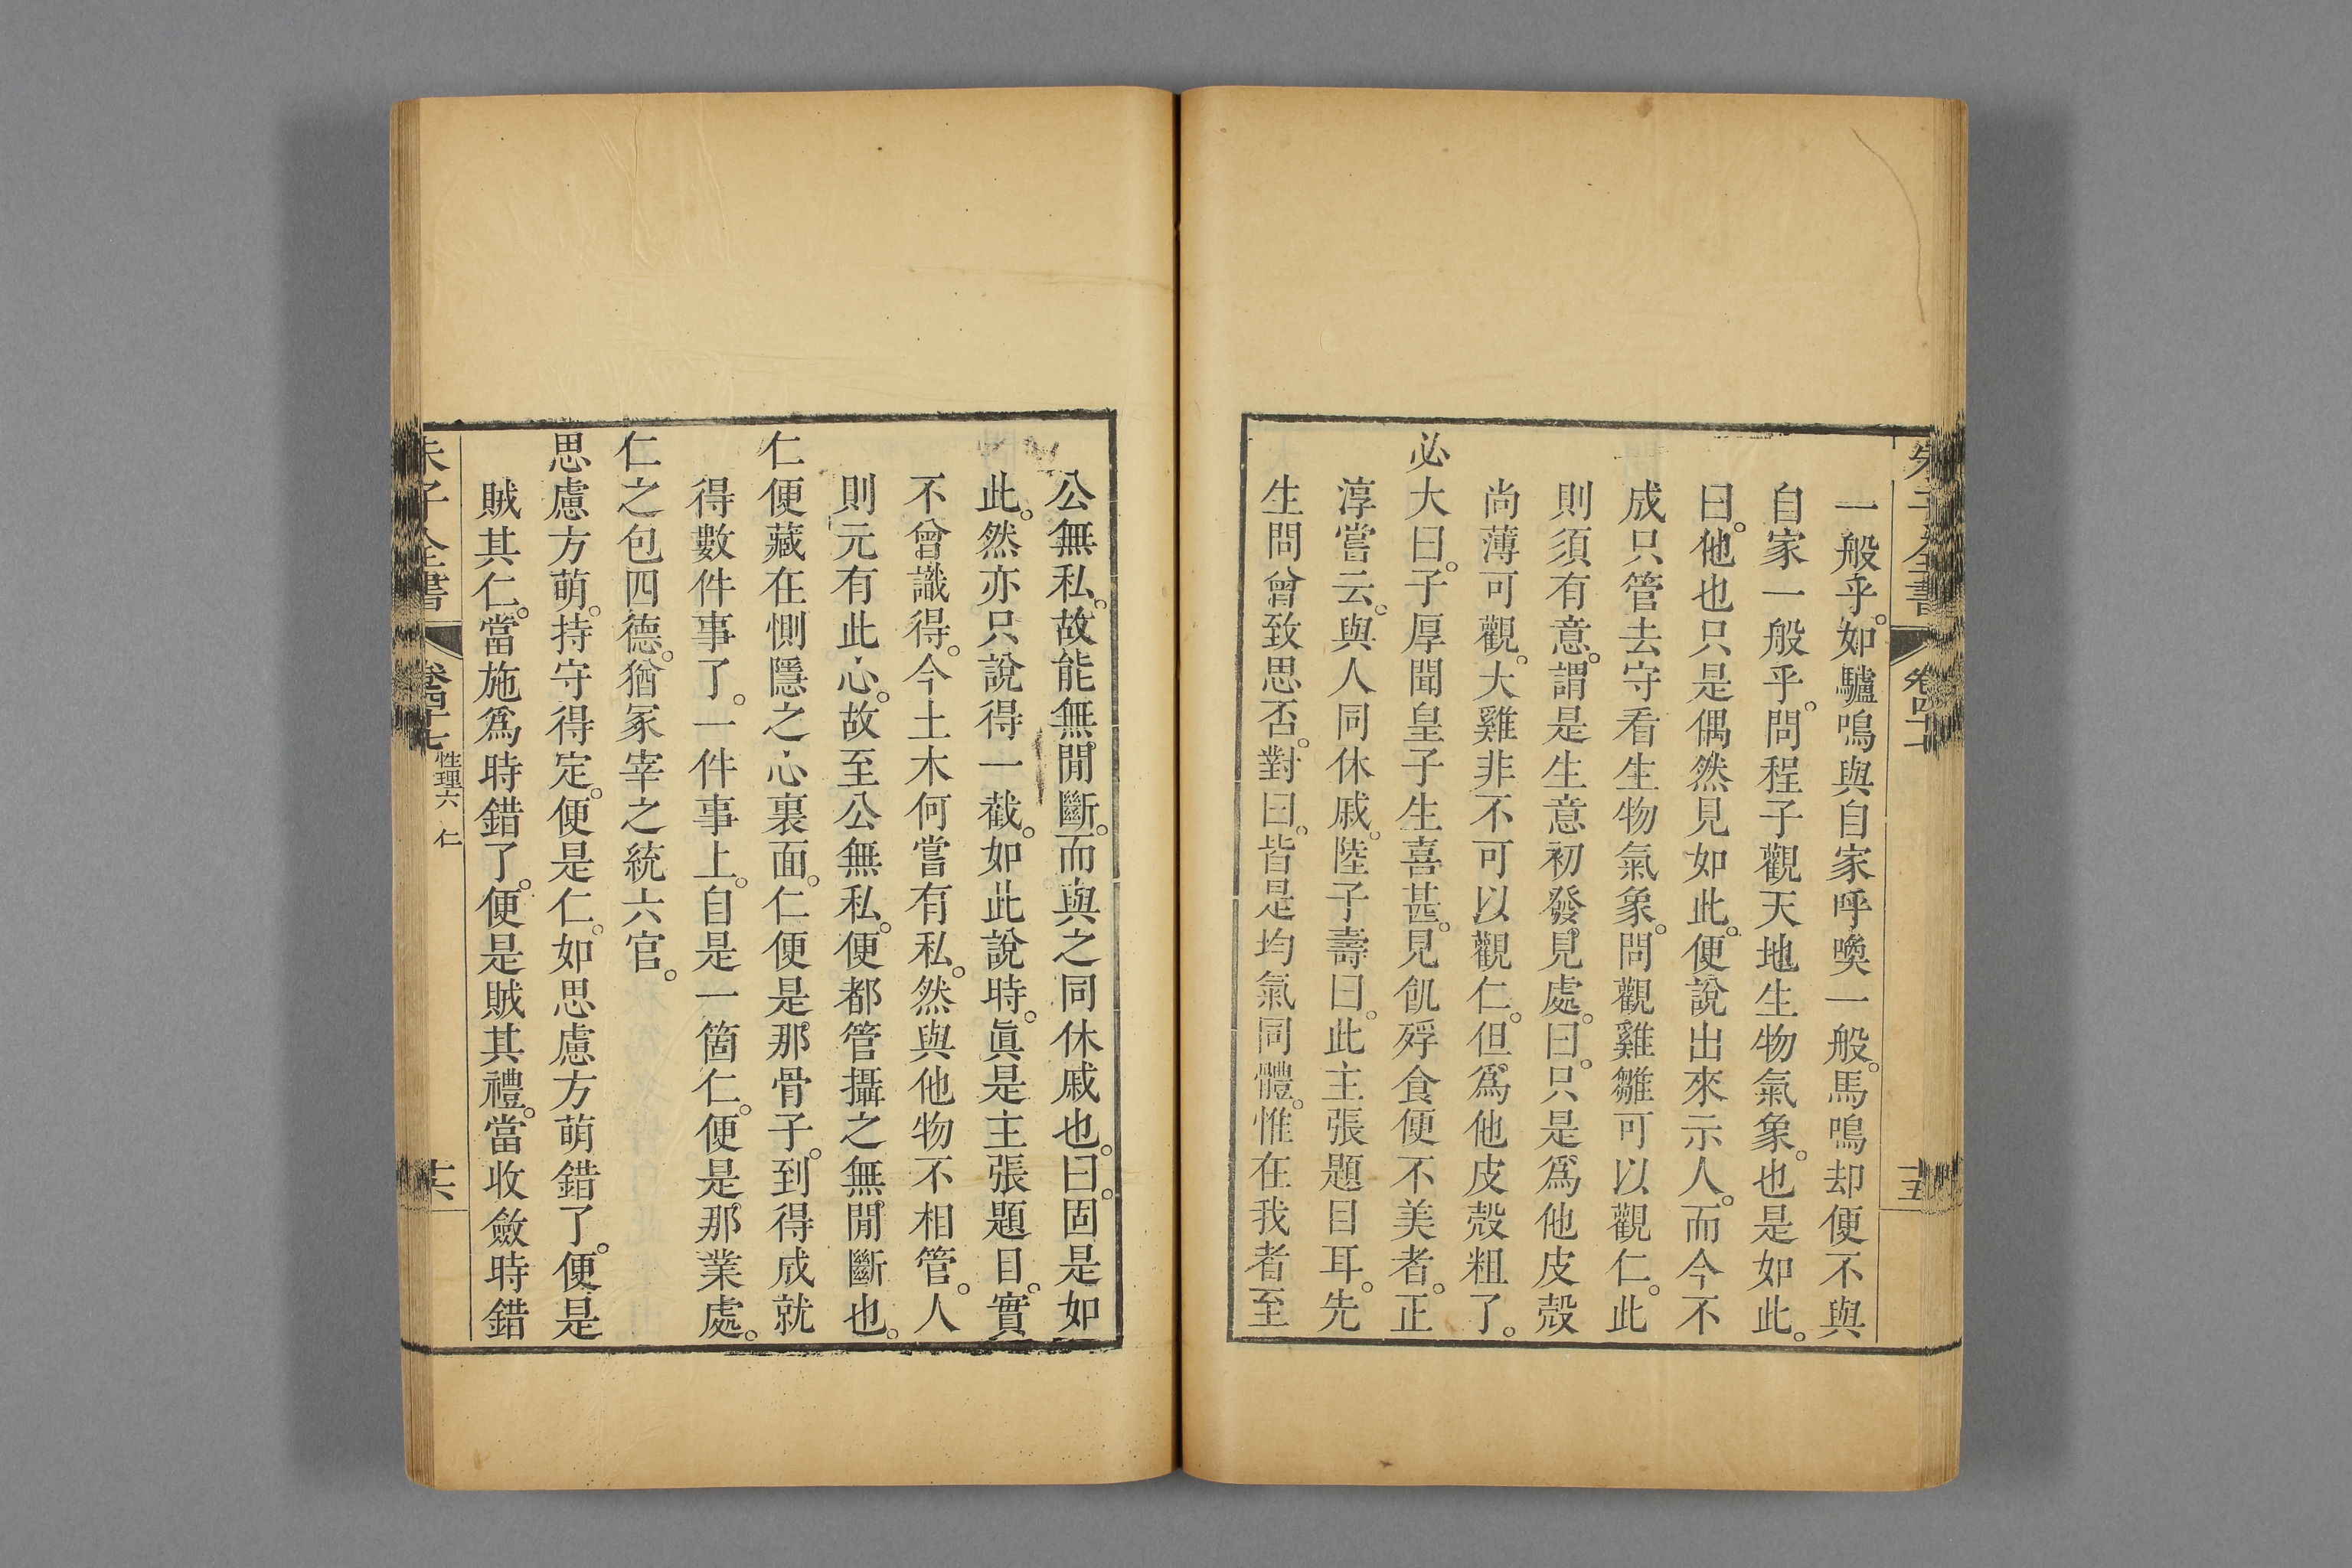 朱子全書 卷四十七 十五
一般乎。如驢鳴與自家呼喚一般。馬鳴却便不與
自家一般乎。問程子觀天地生物氣象。也是如此。
曰。他也只是偶然見如此。便說出來示人。而今不
成只管去守看生物氣象。問觀雞雛可以觀仁。此
則須有意。謂是生意初發見處。曰。只是爲他皮殼
尚薄可觀。大雞非不可以觀仁。但爲他皮殼粗了。
必大曰。子厚聞皇子生喜甚。見飢殍食便不美者。正
淳嘗云。與人同休戚。陸子壽曰。此主張題目耳。先
生問曾致思否。對曰。皆是均氣同體。惟在我者至
公無私。故能無閒斷。而與之同休戚也。曰。固是如
此。然亦只說得一截。如此說時。眞是主張題目。實
不曾識得。今土木何嘗有私。然與他物不相管。人
則元有此心。故至公無私。便都管攝之無閒斷也。
仁便藏在惻隱之心裏面。仁便是那骨子。到得成就
得數件事了。一件事上。自是一箇仁。便是那業處。
仁之包四德。猶冢宰之統六官。
思慮方萌。持守得定。便是仁。如思慮方萌錯了。便是
賊其仁。當施爲時錯了。便是賊其禮。當收斂時錯
朱子全書 卷四十七 性理六 仁 十六